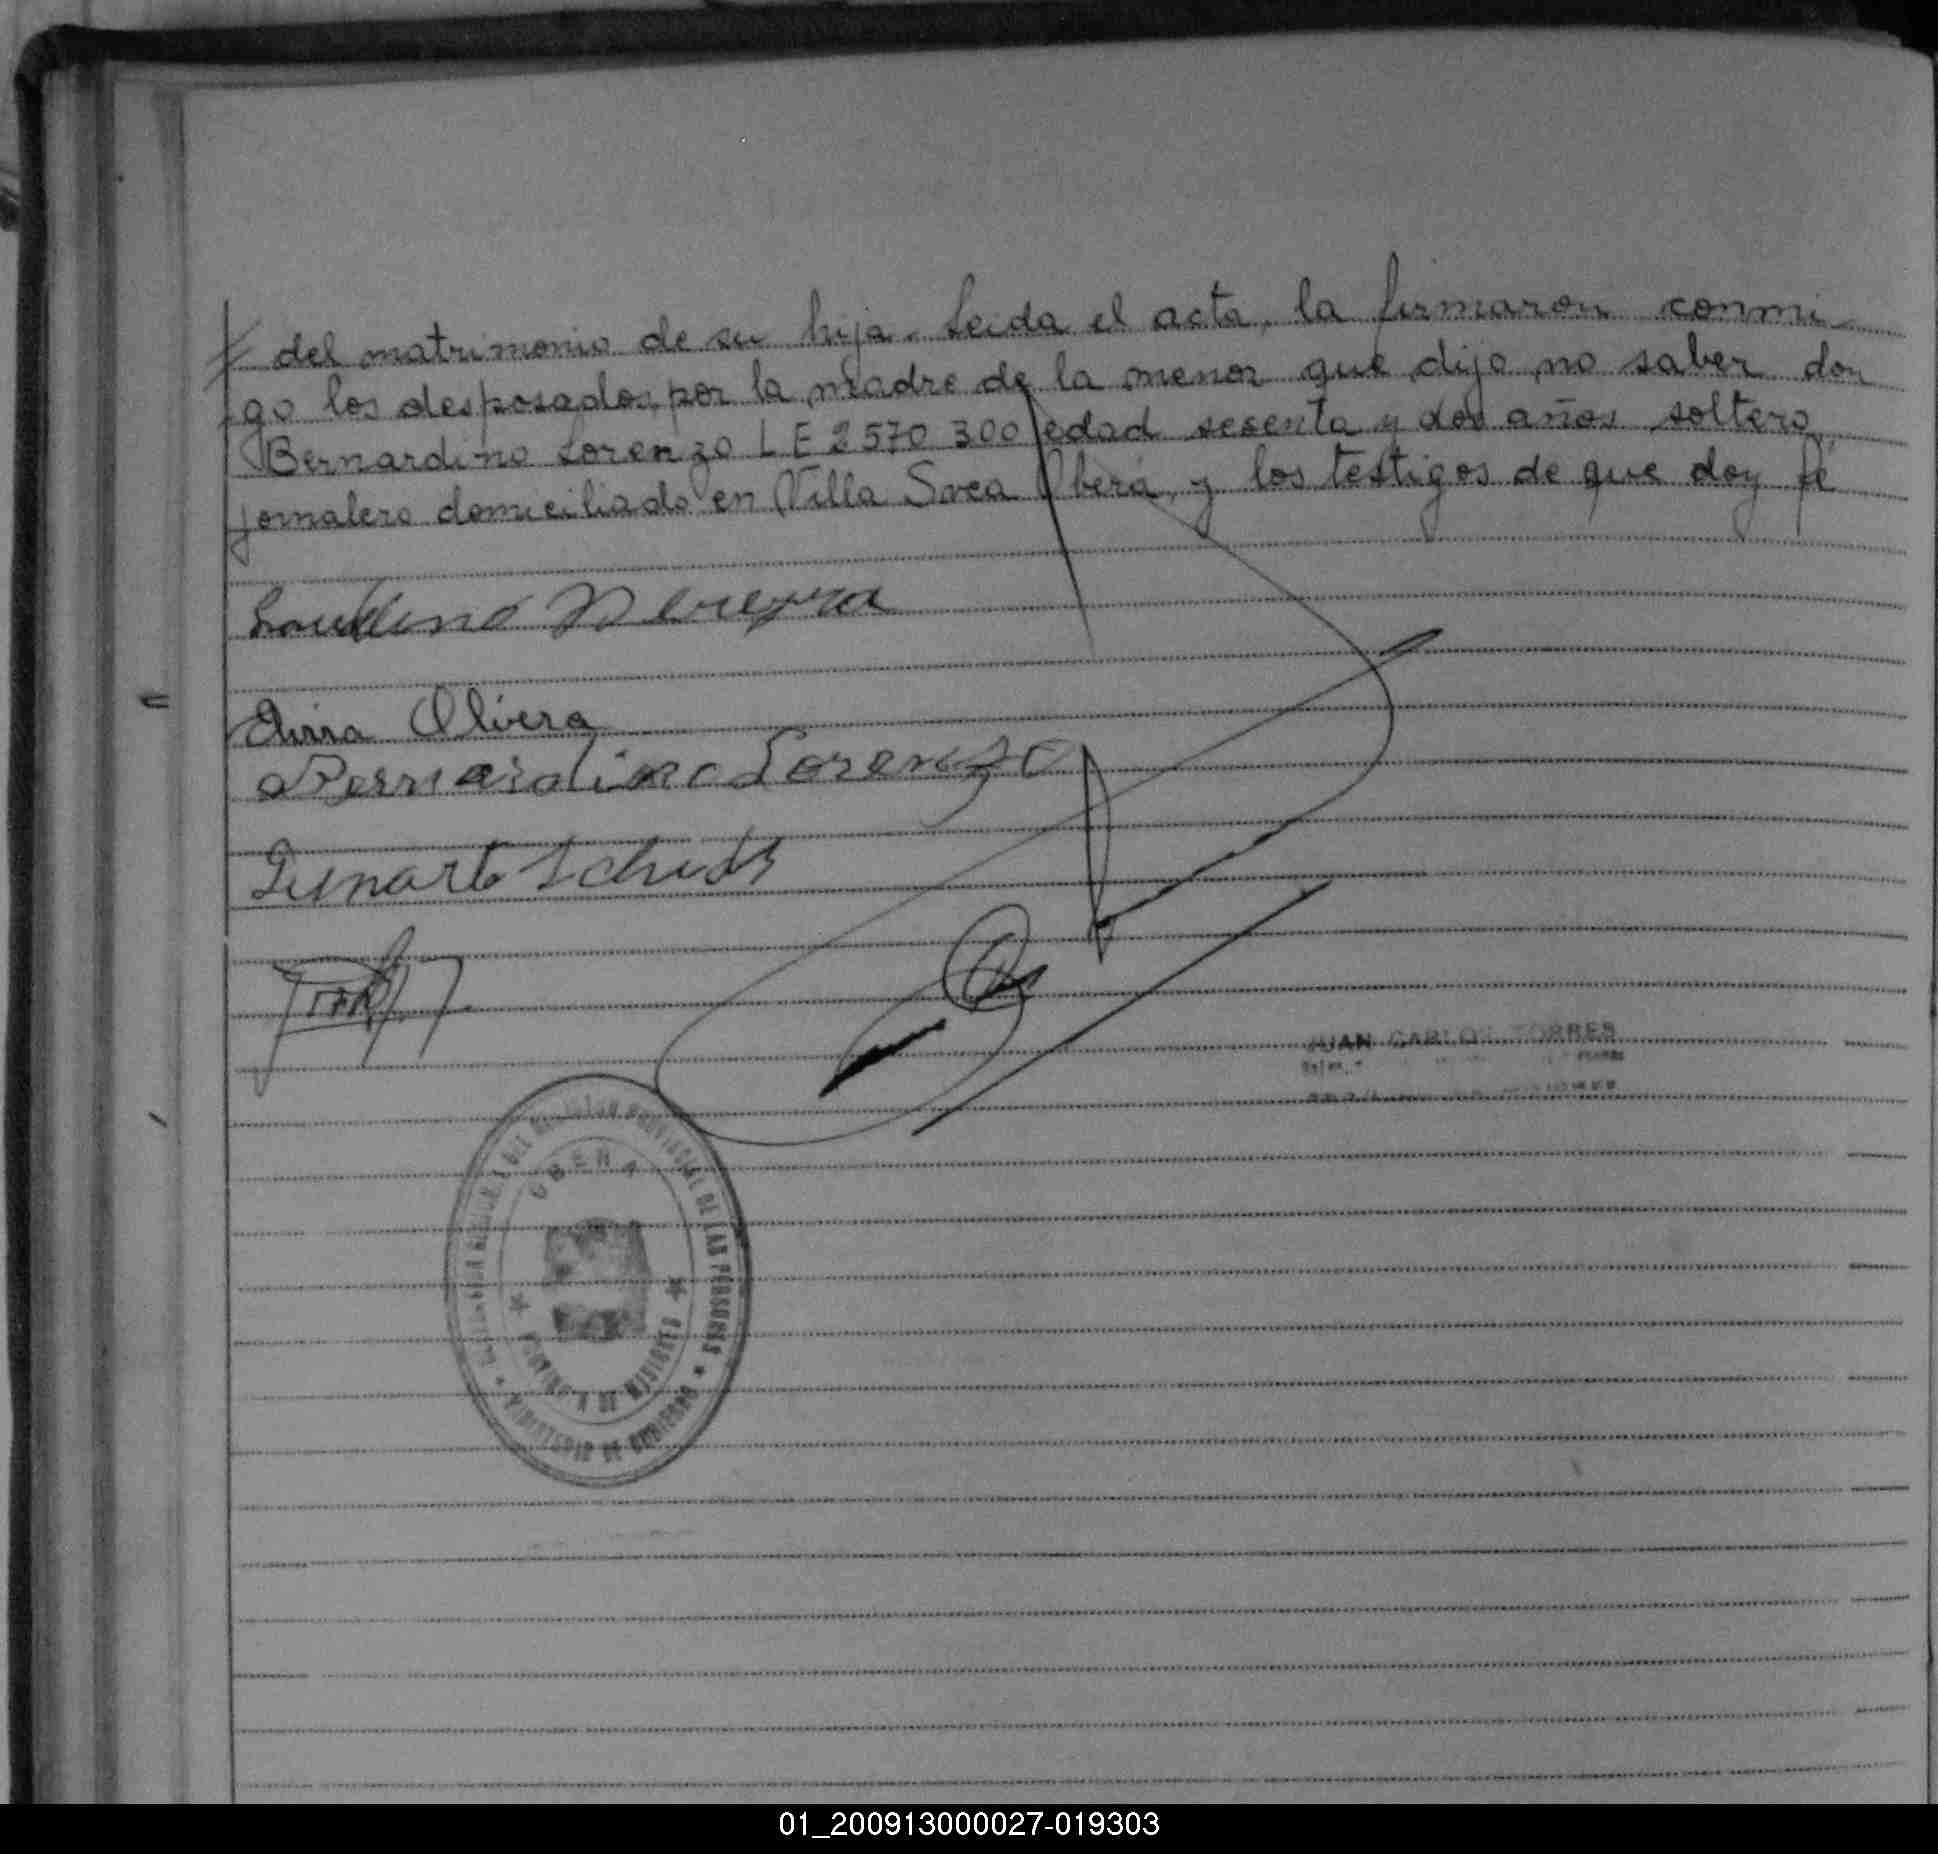 del matrimonio de su hija. Leida el acta, la firmaron conmi-
go los desposados, por la madre de la menor que dijo no saber don
Bernardino Lorenzo L E 2 570 300 edad sesenta y dos años soltero,
jornalero domiciliado en Villa Svea Oberá, y los testigos de que doy fé
Pereyra
Olivera
Bernardino Lorenzo
JUAN CARLOS TORRES
OBERA
PROVINCIAL DE LAS PERSONAS
PROVINCIA DE MISIONES
MINISTERIO DE GOBIERNO
01_200913000027-019303